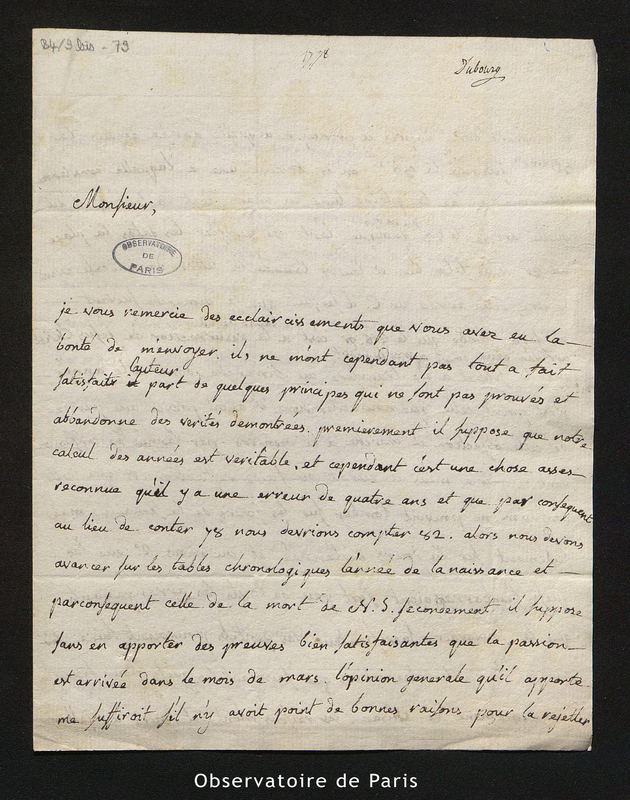 84/9 bis - 79
1778
Dubourg
Monsieur,
OBSERVATOIRE
DE
PARIS
je vous remercie des ecclaircissements que vous avez eu la
bonté de m'envoyer. ils ne mont cependant pas tout a fait
l'auteur
satisfaits part de quelques principes qui ne sont pas prouvés et
abbandonne des verités demontrées. premierement il suppose que notre
calcul des années est veritable, et cependant c'est une chose asses
reconnue qu'il y a une erreur de quatre ans et que par consequent
au lieu de conter 78 nous devrions compter 82. alors nous devons
avancer sur les tables chronologiques l'année de la naissance et
parconsequent celle de la mort de N. S. secondement il suppose
sans en apporter des preuves bien satisfaisantes que la passion
est arrivée dans le mois de mars. l'opinion generale qu'il apporte
me suffiroit s'il n'y avoit point de bonnes raisons pour la rejetter
Observatoire de Paris